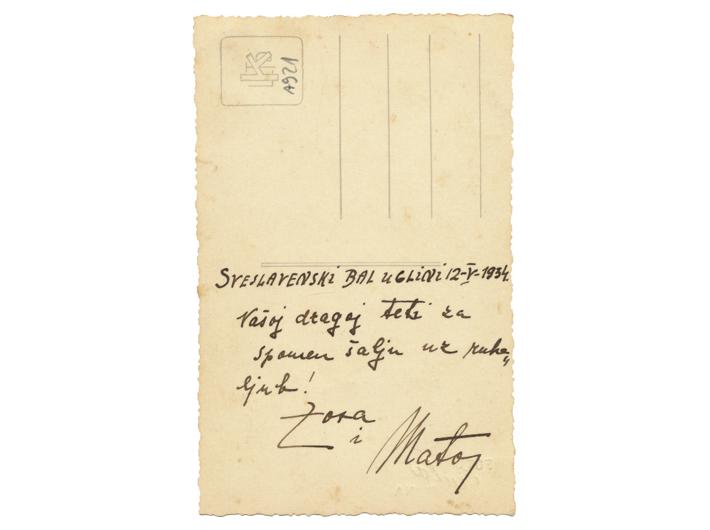 A921
SVESLAVENSKI BAL u GLINI 12-V-1934.
Našoj dragoj teti za
spomen šalju uz ruko„
ljub!
Zora
i
Matoj